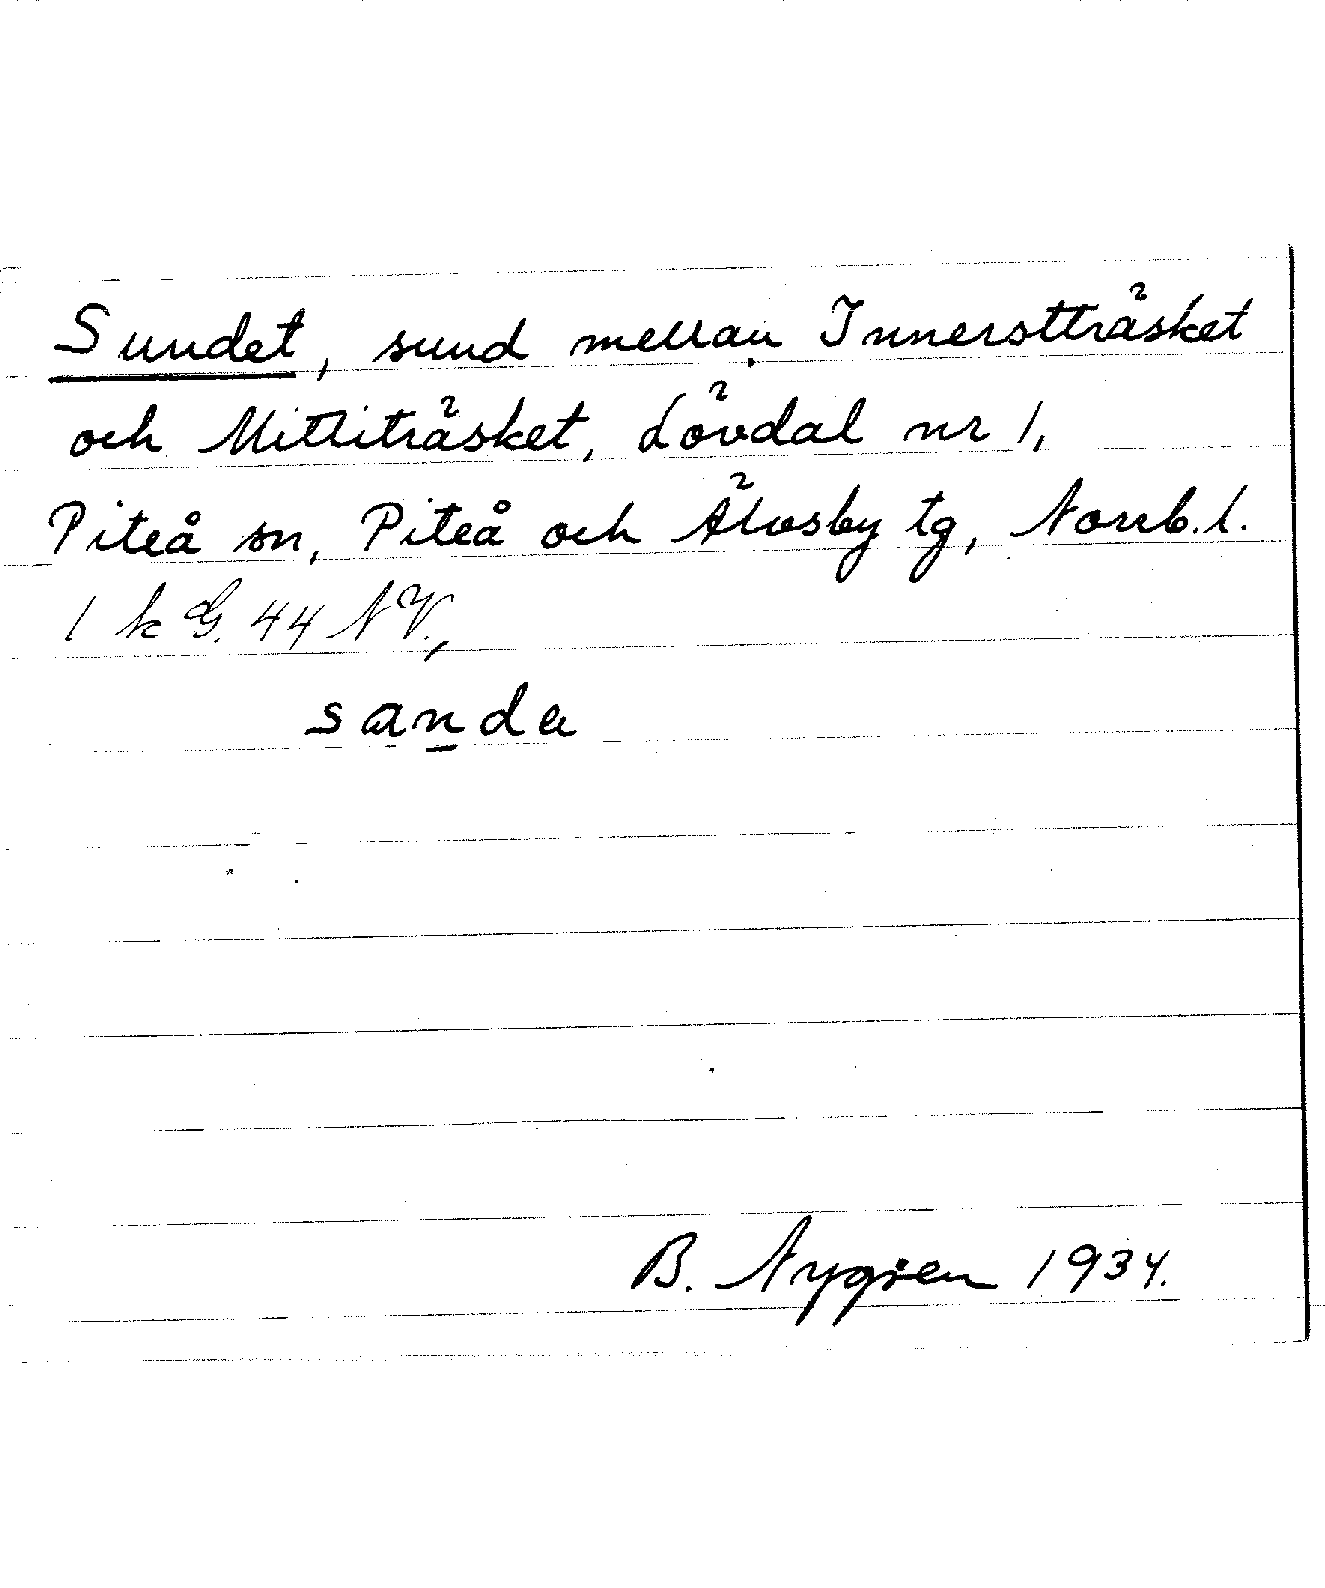 Sundet, sund mellan Innerstträsket
och Mittiträsket, Lövdal nr 1,
Piteå sn, Piteå och Älvsby tg, Norrb. l.
1 k G. 44 NV.,
sanda
B. Nygren 1934.